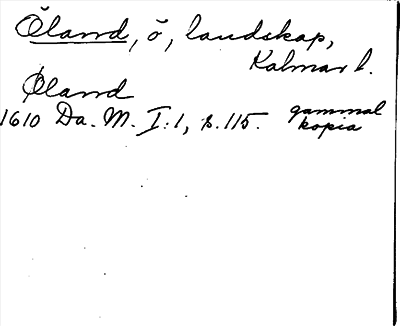 Öland, ö, landskap,
Kalmar l.
Øland
1610 Da. M. I:1, s. 115. gammal
kopia